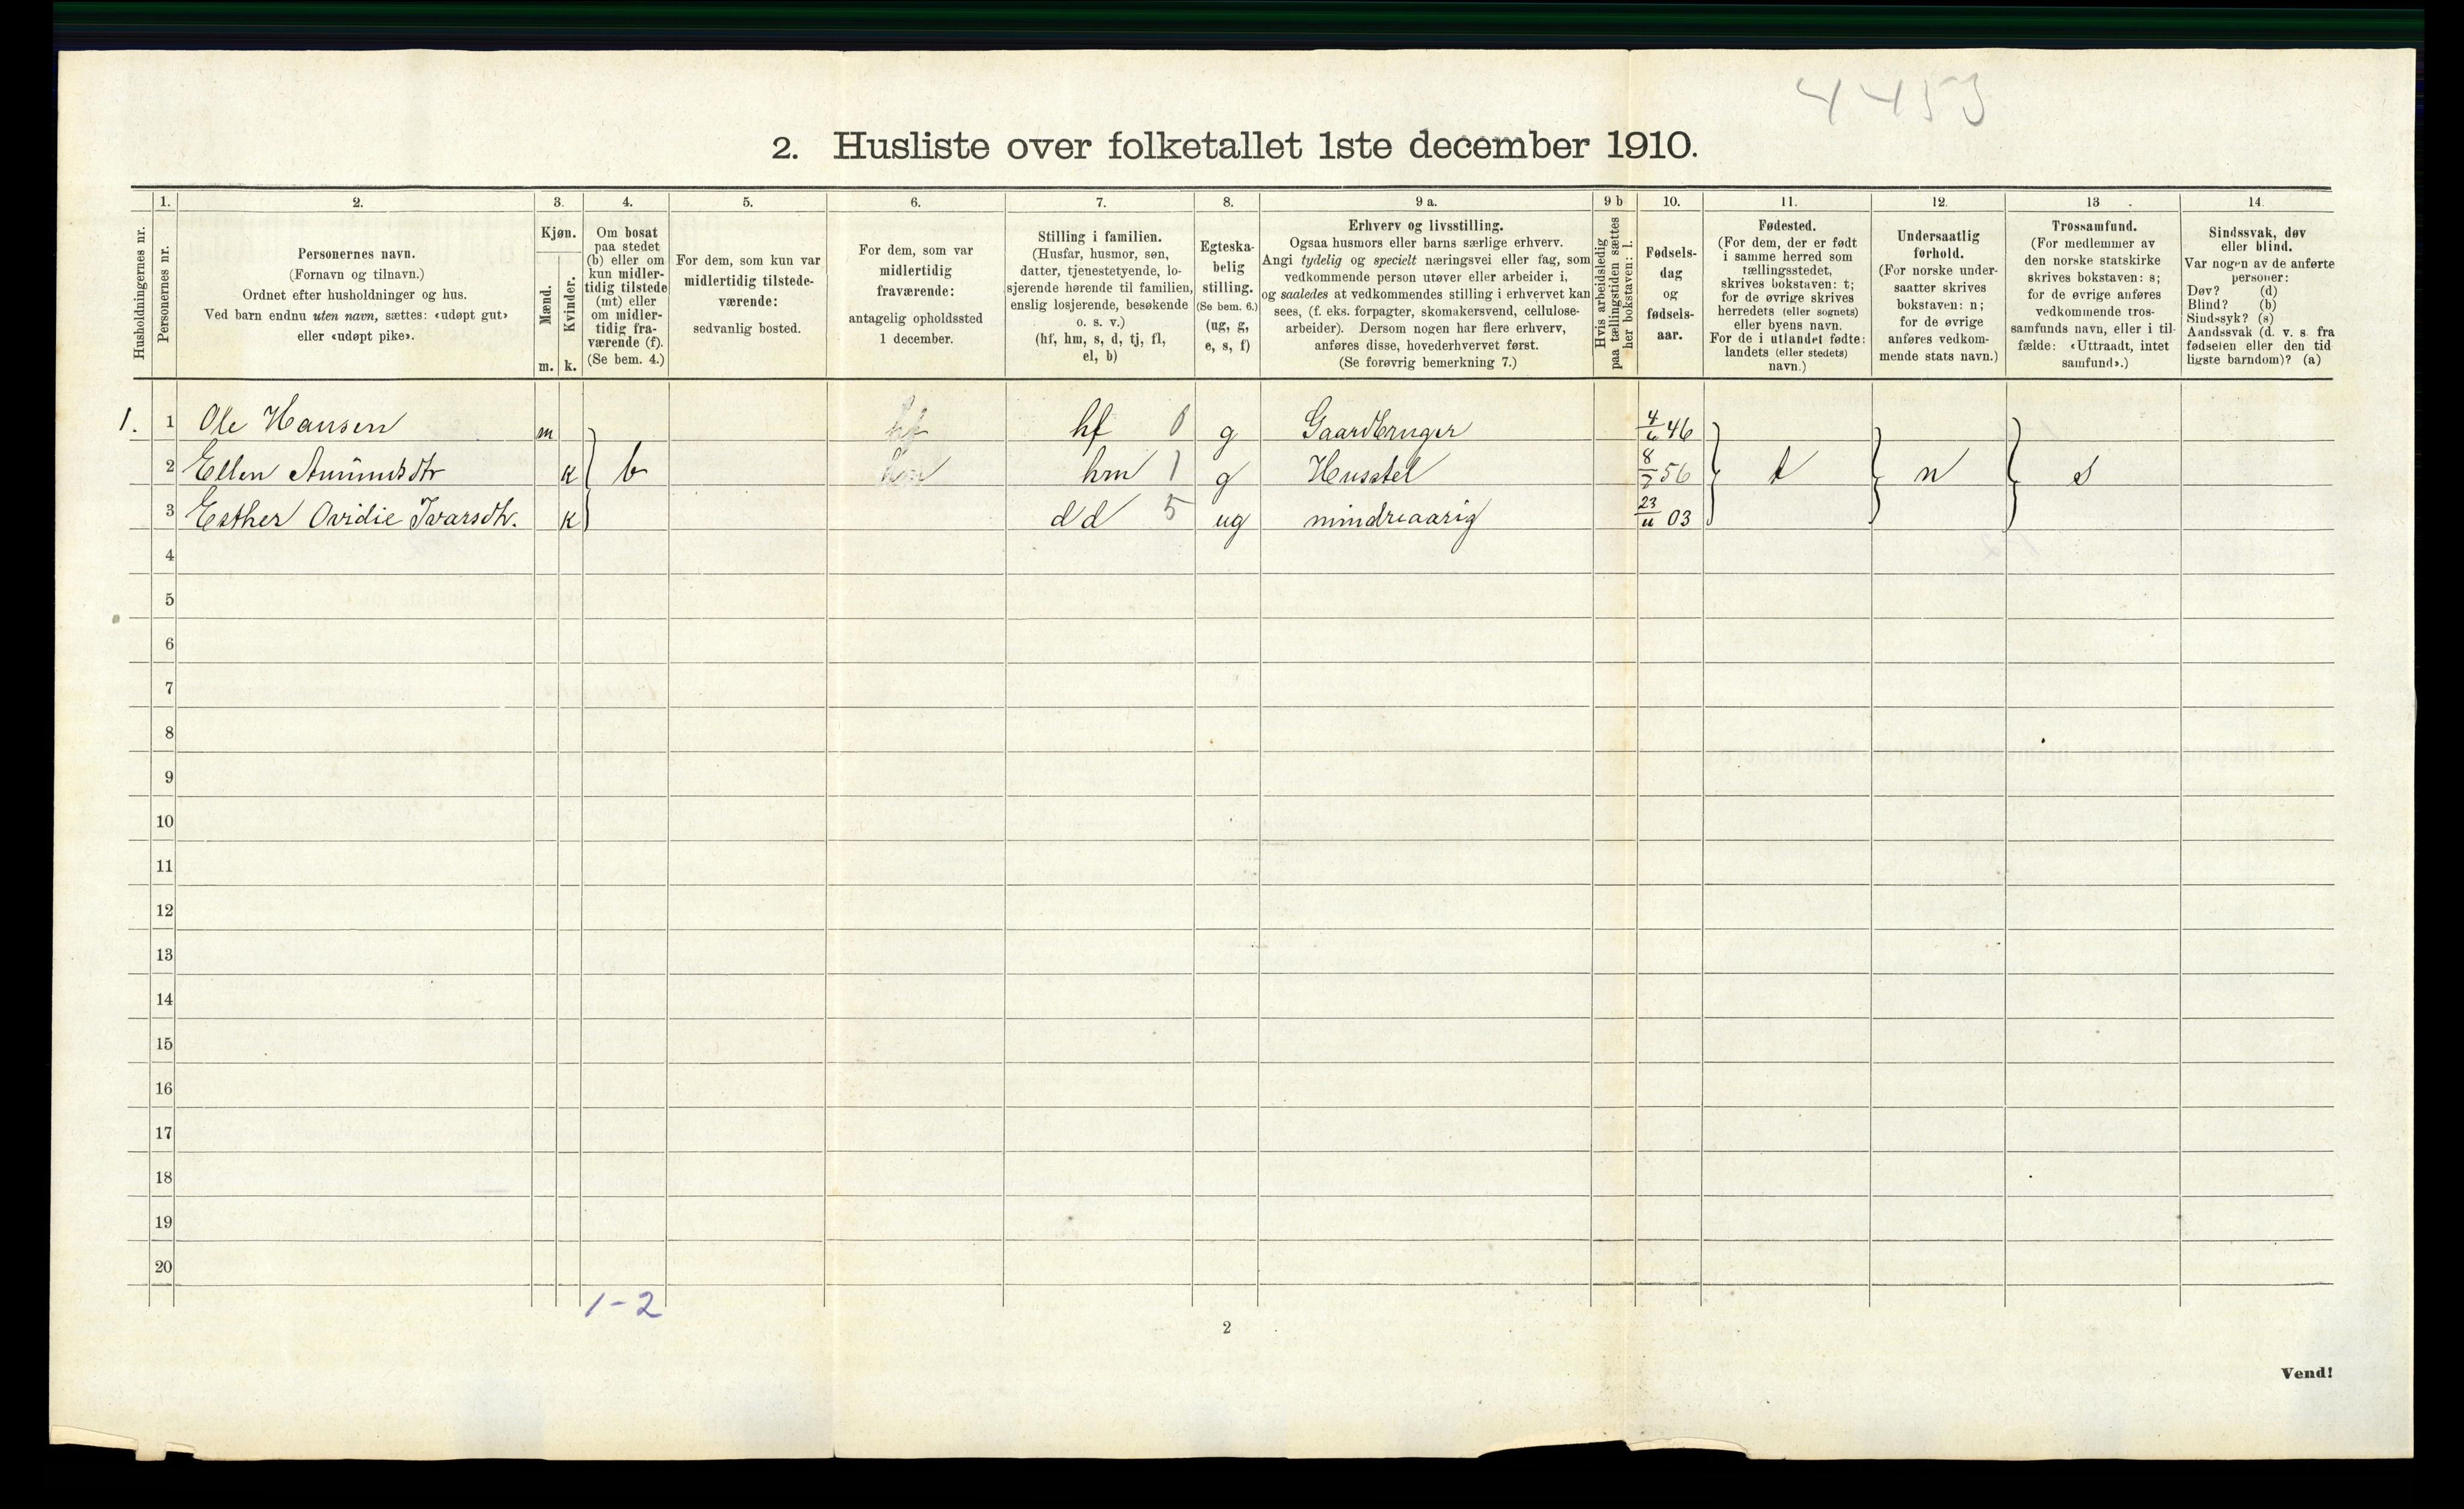 4453
2. Husliste over folketallet 1ste december 1910.
Husholdningernes nr.
1.
Personernes nr.
2.
Personernes navn.
(Fornavn og tilnavn.)
Ordnet efter husholdninger og hus.
Ved barn endnu uten navn, sættes: «udøpt gut»
eller «udøpt pike».
3.
Kjøn.
Mænd.
Kvinder.
m. k.
4.
Om bosat
paa stedet
(b) eller om
kun midler-
tidig tilstede
(mt) eller
om midler-
tidig fra-
værende (f).
(Se bem. 4.)
5.
For dem, som kun var
midlertidig tilstede-
værende:
sedvanlig bosted.
6.
For dem, som var
midlertidig
fraværende:
antagelig opholdssted
1 december.
7.
Stilling i familien.
(Husfar, husmor, søn,
datter, tjenestetyende, lo-
sjerende hørende til familien,
enslig losjerende, besøkende
o. s. v.)
(hf, hm, s, d, tj, fl,
el, b)
8.
Egteska-
belig
stilling.
(Se bem. 6.)
(ug, g,
e, s, f)
9 a.
Erhverv og livsstilling.
Ogsaa husmors eller barns særlige erhverv.
Angi tydelig og specielt næringsvei eller fag, som
vedkommende person utøver eller arbeider i,
og saaledes at vedkommendes stilling i erhvervet kan
sees, (f. eks. forpagter, skomakersvend, cellulose-
arbeider). Dersom nogen har flere erhverv,
anføres disse, hovederhvervet først.
(Se forøvrig bemerkning 7.)
9 b
Hvis arbeidsledig
paa tællingstiden sættes
her bokstaven: l.
10.
Fødsels-
dag
og
fødsels-
aar.
11.
Fødested.
(For dem, der er født
i samme herred som
tællingsstedet,
skrives bokstaven: t;
for de øvrige skrives
herredets (eller sognets)
eller byens navn.
For de i utlandet fødte:
landets (eller stedets)
navn.)
12.
Undersaatlig
forhold.
(For norske under-
saatter skrives
bokstaven: n;
for de øvrige
anføres vedkom-
mende stats navn.)
13.
Trossamfund.
(For medlemmer av
den norske statskirke
skrives bokstaven: s;
for de øvrige anføres
vedkommende tros-
samfunds navn, eller i til-
fælde: «Uttraadt, intet
samfund».)
14.
Sindssvak, døv
eller blind.
Var nogen av de anførte
personer:
Døv? (d)
Blind? (b)
Sindssyk? (s)
Aandssvak (d. v. s. fra
fødselen eller den tid
ligste barndom)? (a)
1. 1 Ole Hansen m hf hf 0 g Gaardbruger 4/6 46
2 Ellen Amundsdtr k b hm hm 1 g Husstel 8/2 56 t n s
3 Esther Ovidie Ivarsdtr. k dd 5 ug mindreaarig 23/11 03
4
5
6
7
8
9
10
11
12
13
14
15
16
17
18
19
20
1-2
2
Vend!